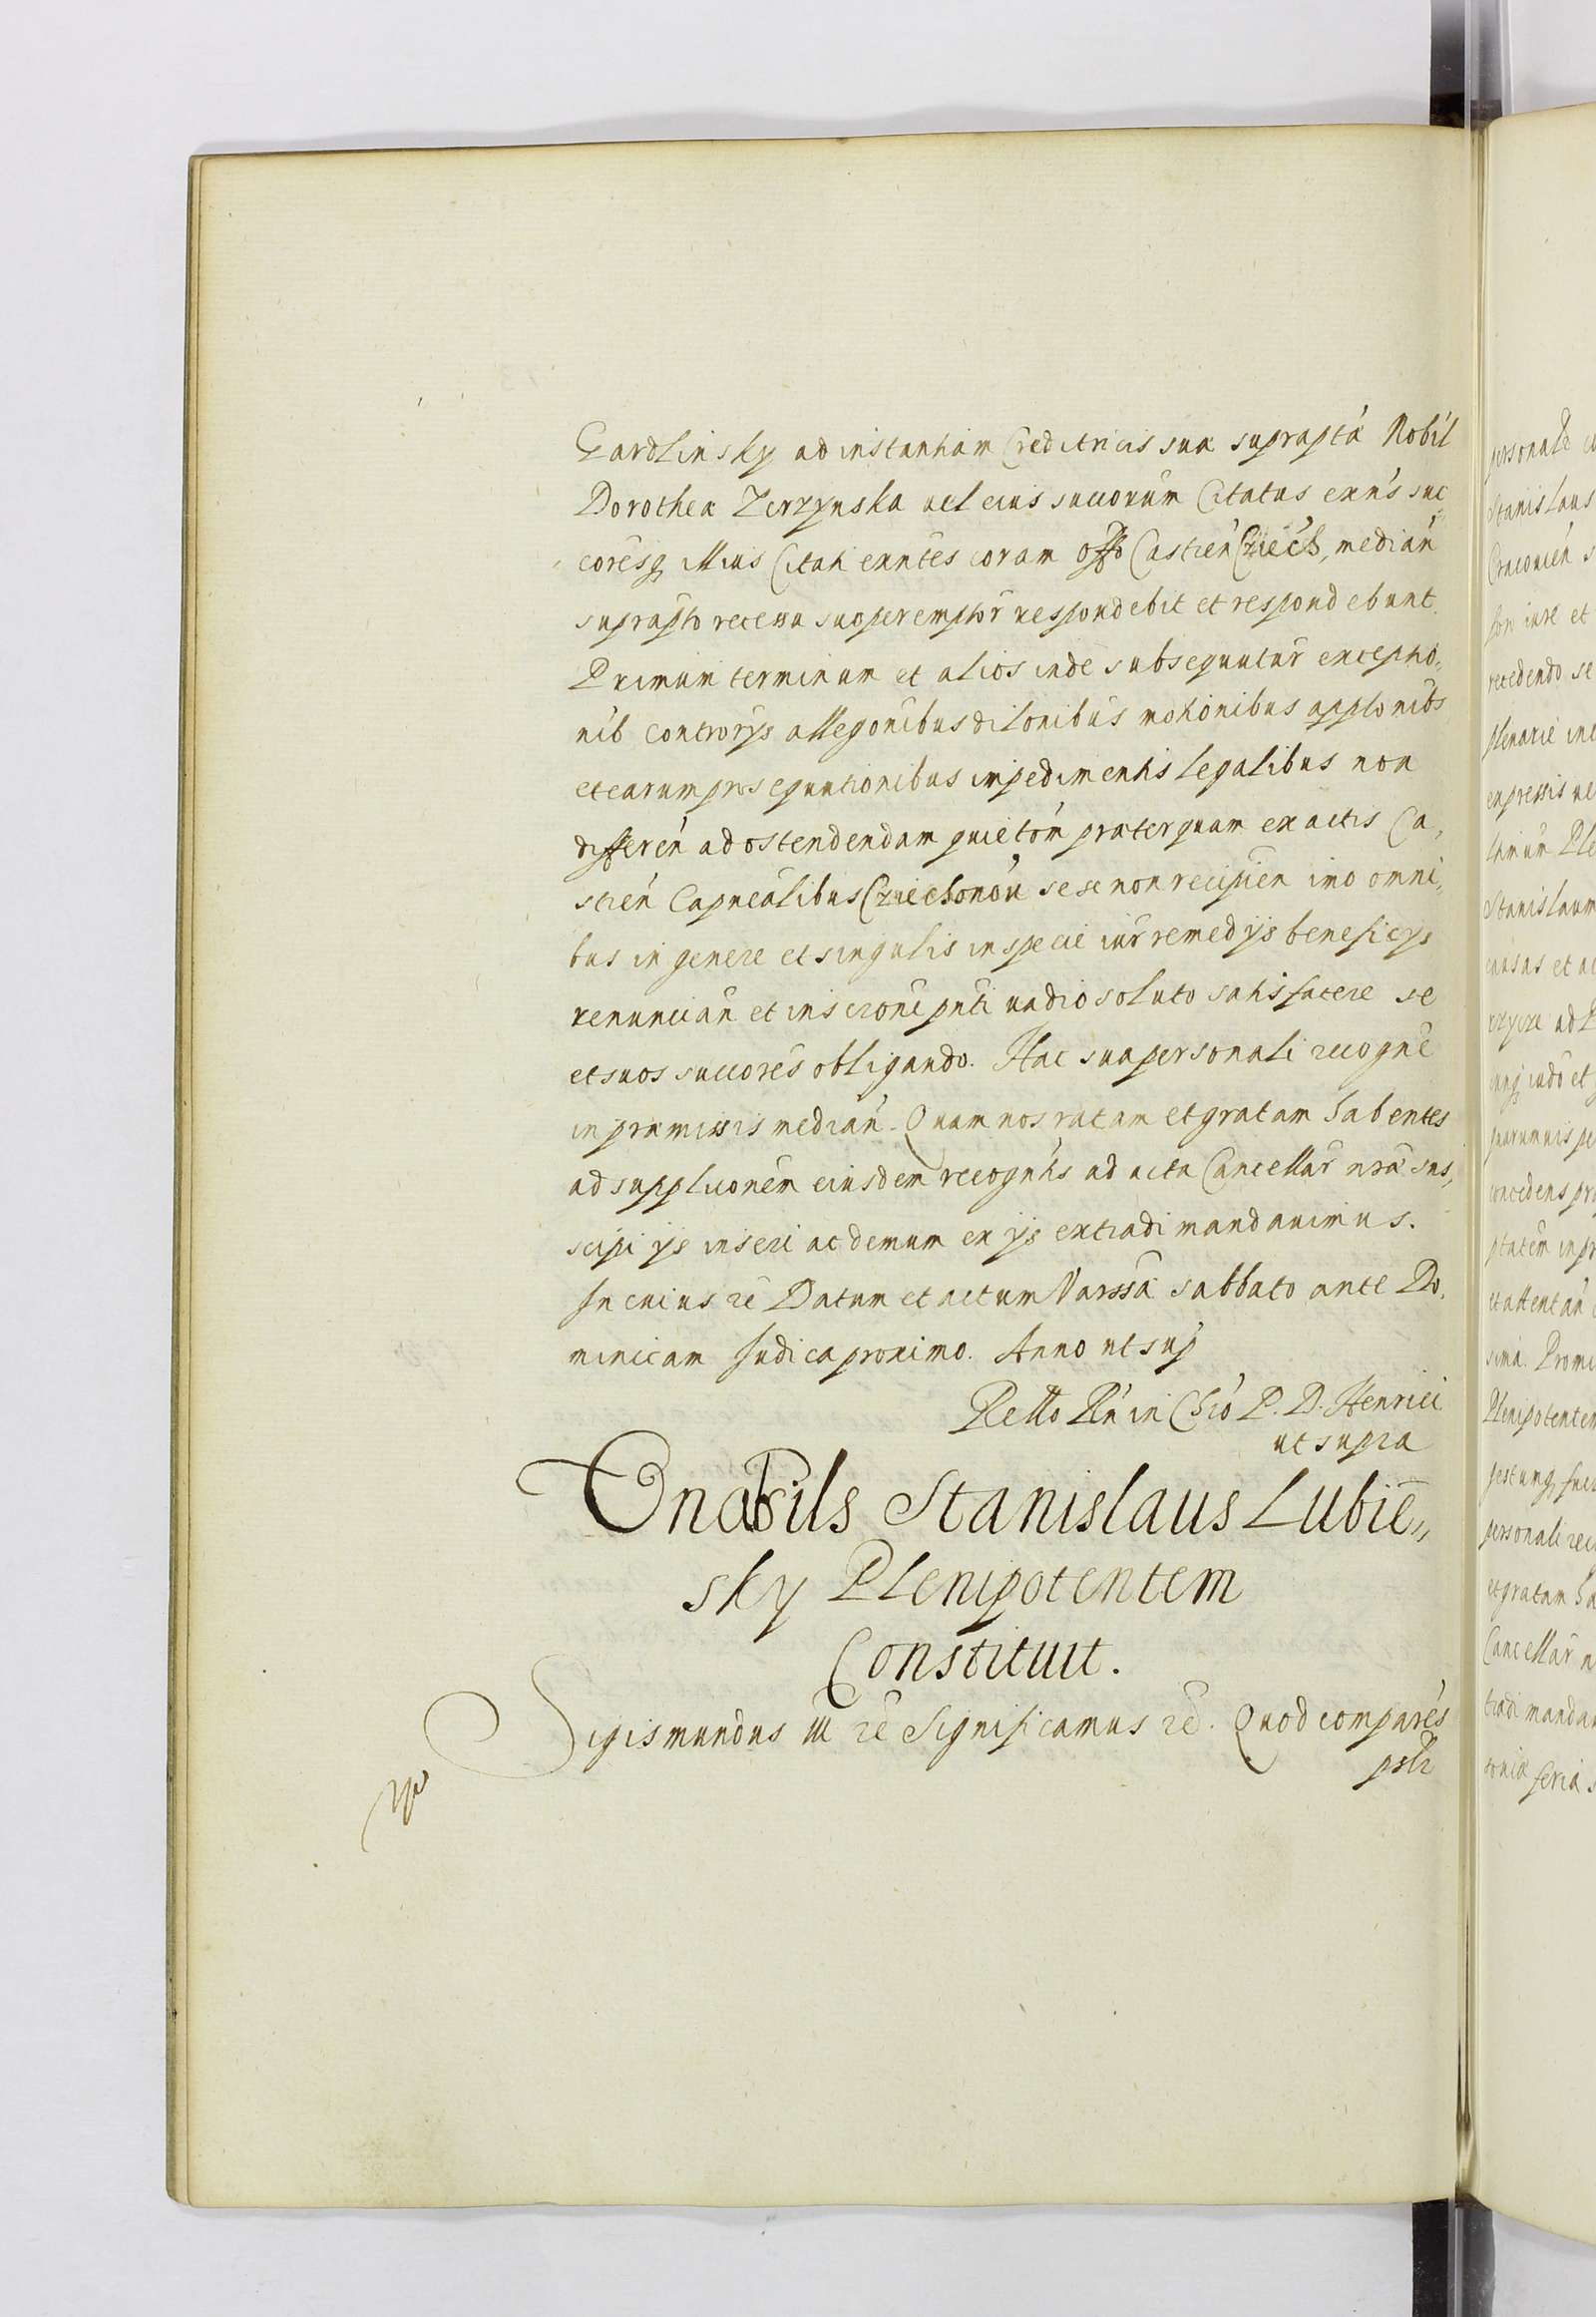 Gardlinsky ad instantiam Creditricis suæ suprapta Nobil
Dorotheæ Zerzynska vel eius succorum Citatus exns suc
coresq illius Citati exntes coram offo Castren Cziech, median
suprapto recessu suo peremptor respondebit et respondebunt.
Primum terminum et alios inde subsequutur exceptio,
nib controrys allegonibus dilonibus motionibus applonibs
et earum prosequutionibus impedimentis legalibus non
differen ad ostendendam quieton præterquam ex actis Ca,
stren Capnealibus Cziechonon sese non recipien imo omni,
bus in genere et singulis in specie iur remedys beneficys
renuncian et inscrone pnti vadio soluto satisfacere se
et suos succores obligando. Hac sua personali recogne
in præmissis median. Quam nos ratam et gratam habentes
ad supplicionem eiusdem recogntis ad acta Cancellar nræ sus,
scipi ys inseri ac demum ex ys extradi mandavimus.
In cuius re Datum et actum Varssa Sabbato ante Do,
minicam Judica proximo. Anno ut sup
Rello Rn in Chro P. D. Henrici
ut supra
Gnabils Stanislaus Lubie,,
sky Plenipotentem
Constituit.
Sigismundus III re Significamus re. Quod compares
pslr
personale
Stanislaus
Cracovien
iure et
recedendo se
plenarie
expressis
Ple
Stanislaum
causas et
ad
iudo et
quarumvis
concedens
ptatem in
attentan
sima. Promi
Plenipotentem
personali
et gratam ha
Cancellar n
tradi mandav
feria